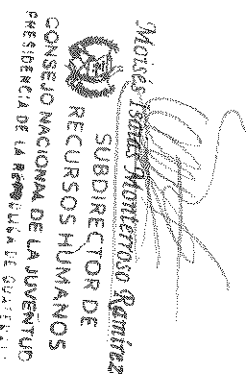 Moises Isaias Monterroso Ramírez
SUBDIRECTOR DE
RECURSOS HUMANOS
CONSEJO NACIONAL DE LA JUVENTUD
PRESIDENCIA DE LA REPÚBLICA DE GUATEMALA